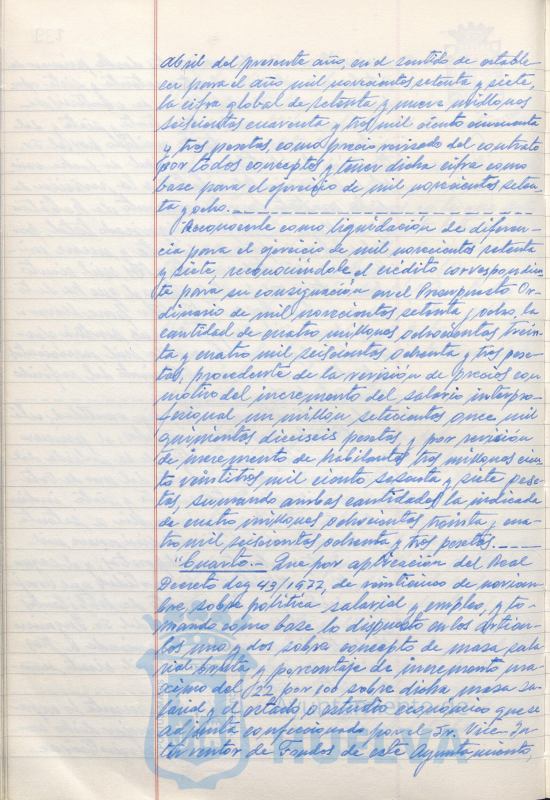 abril del presente año, en el sentido de estable
cer para el año mil novecientos setenta y siete,
la cifra global de setenta y nueve millones
seiscientas cuarenta y tres mil ciento cincuenta
y tres pesetas, como precio revisado del contrato
por todos conceptos y tener dicha cifra como
base para el ejercicio de mil novecientos seten
ta y ocho.
Reconocerle como liquidación de diferen-
cia para el ejercicio de mil novecientos setenta
y siete, reconociéndole el crédito correspondien
te para su consignación en el Presupuesto Or-
dinario de mil novecientos setenta y ocho, la
cantidad de cuatro millones ochocientas trein
ta y cuatro mil seiscientas ochenta y tres pese-
tas, procedente de la revisión de precios con
motivo del incremento del salario interpro-
fesional un millón setecientas once mil
quinientas dieciseis pesetas y por revisión
de incremento de habitantes tres millones cien
to veintitres mil ciento sesenta y siete pese-
tas, sumando ambas cantidades la indicada
de cuatro millones ochocientas treinta y cua-
tro mil seiscientas ochenta y tres pesetas.
"Cuarto.- Que por aplicación del Real
Decreto Ley 43/1977, de veinticinco de noviem-
bre, sobre política salarial y empleo, y to-
mando como base lo dispuesto en los artícu-
los uno y dos sobre concepto de masa sala
rial bruta y porcentaje de incremento má-
ximo del 22 por 100 sobre dicha masa sa-
larial, el estado o estudio económico que se
adjunta confeccionado por el Sr. Vice-In
terventor de Fondos de este Ayuntamiento,
HUELVA